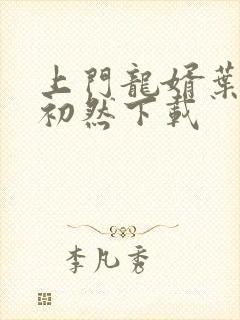 上門龍婿葉
初然下載
李凡秀